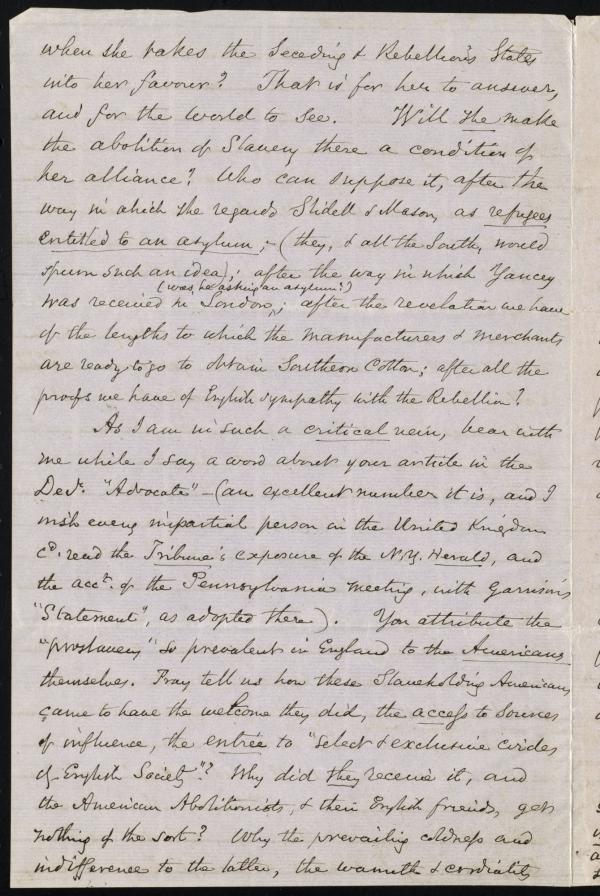 when she takes the Seceding & Rebellious States
into her favour? That is for her to answer,
and for the world to see. Will she make
the abolition of Slavery there a condition of
her alliance? Who can suppose it, after the
way in which she regards Slidell & Mason, as refugees
entitled to an asylum,- (they, & all the South, would
spurn such an idea); after the way in which Yancey
(was he asking an asylum?)
was received in London; after the revelation we have
of the lengths to which the manufacturers & merchants
are ready to go to obtain Southern Cotton; after all the
proofs we have of English sympathy with the Rebellion?
As I am in such a critical vein, bear with
me while I say a word about your article in the
Decr. "Advocate" - (an excellent number it is, and I
wish every impartial person in the United Kingdom
cd. read the Tribune's exposure of the N.Y. Herald, and
the acct. of the Pennsylvania meeting, with Garrison's
"Statement", as adopted there). You attribute the
"proslavery" so prevalent in England to the Americans
themselves. Pray tell us how these Slaveholding Americans
came to have the welcome they did, the access to sources
of influence, the entrée to "select & exclusive circles
of English Society"? Why did they receive it, and
the American Abolitionists, & their English friends, get
nothing of the sort? Why the prevailing coldness and
indifference to the latter, the warmth & cordiality